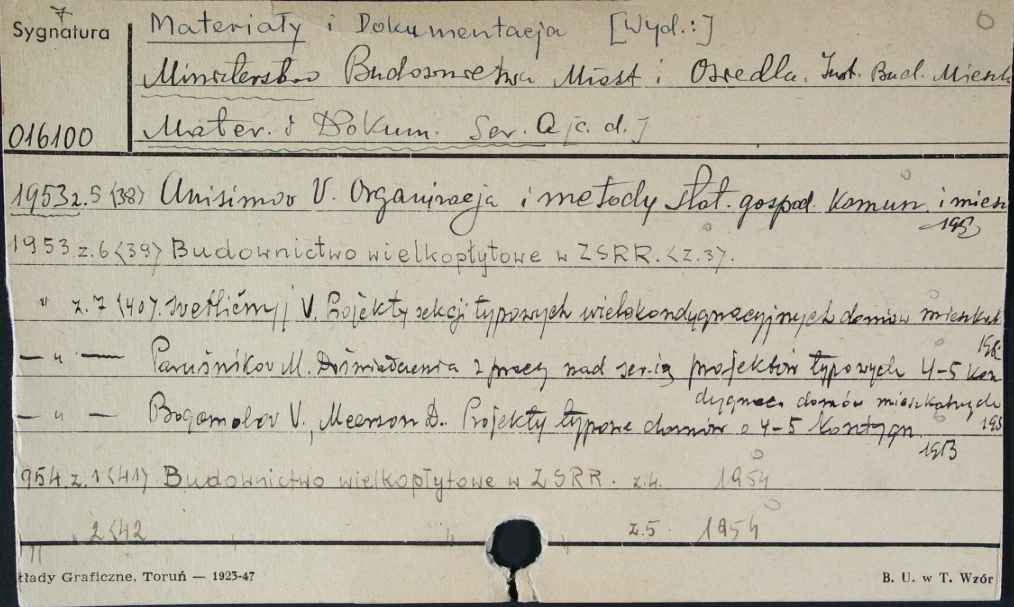 7
Sygnatura
Materiały i Dokumentacja [Wyd.:]
Ministerstwo Budownictwa Miast i Osiedla. Inst. Bud. Mieszk
016100
Mater. i Dokum. Ser. Q [c. d.]
1953 z. 5 <38> Anisimov V. Organizacja i metody stat. gospod. Komun. i miesz
1953
1953 z. 6 <39> Budownictwo wielkopłytowe w ZSRR. <z. 3>.
" z. 7 <40>. Svetličnyj V. Projekty sekcji typowych wielokondygnacyjnych domów mieszkal
195
— " — Parušnikov M. Doświadczenia z pracy nad serią projektów typowych 4-5 kon
dygnac. domów mieszkalnych
195
— " — Bogomolov V., Meerson D. Projekty typowe domów o 4-5 kondygn.
1953
954. z. 1 <41> Budownictwo wielkopłytowe w ZSRR. z. 4. 1954
" 2 <42 " " z. 5. 1954
kłady Graficzne, Toruń — 1925-47
B. U. w T. Wzór